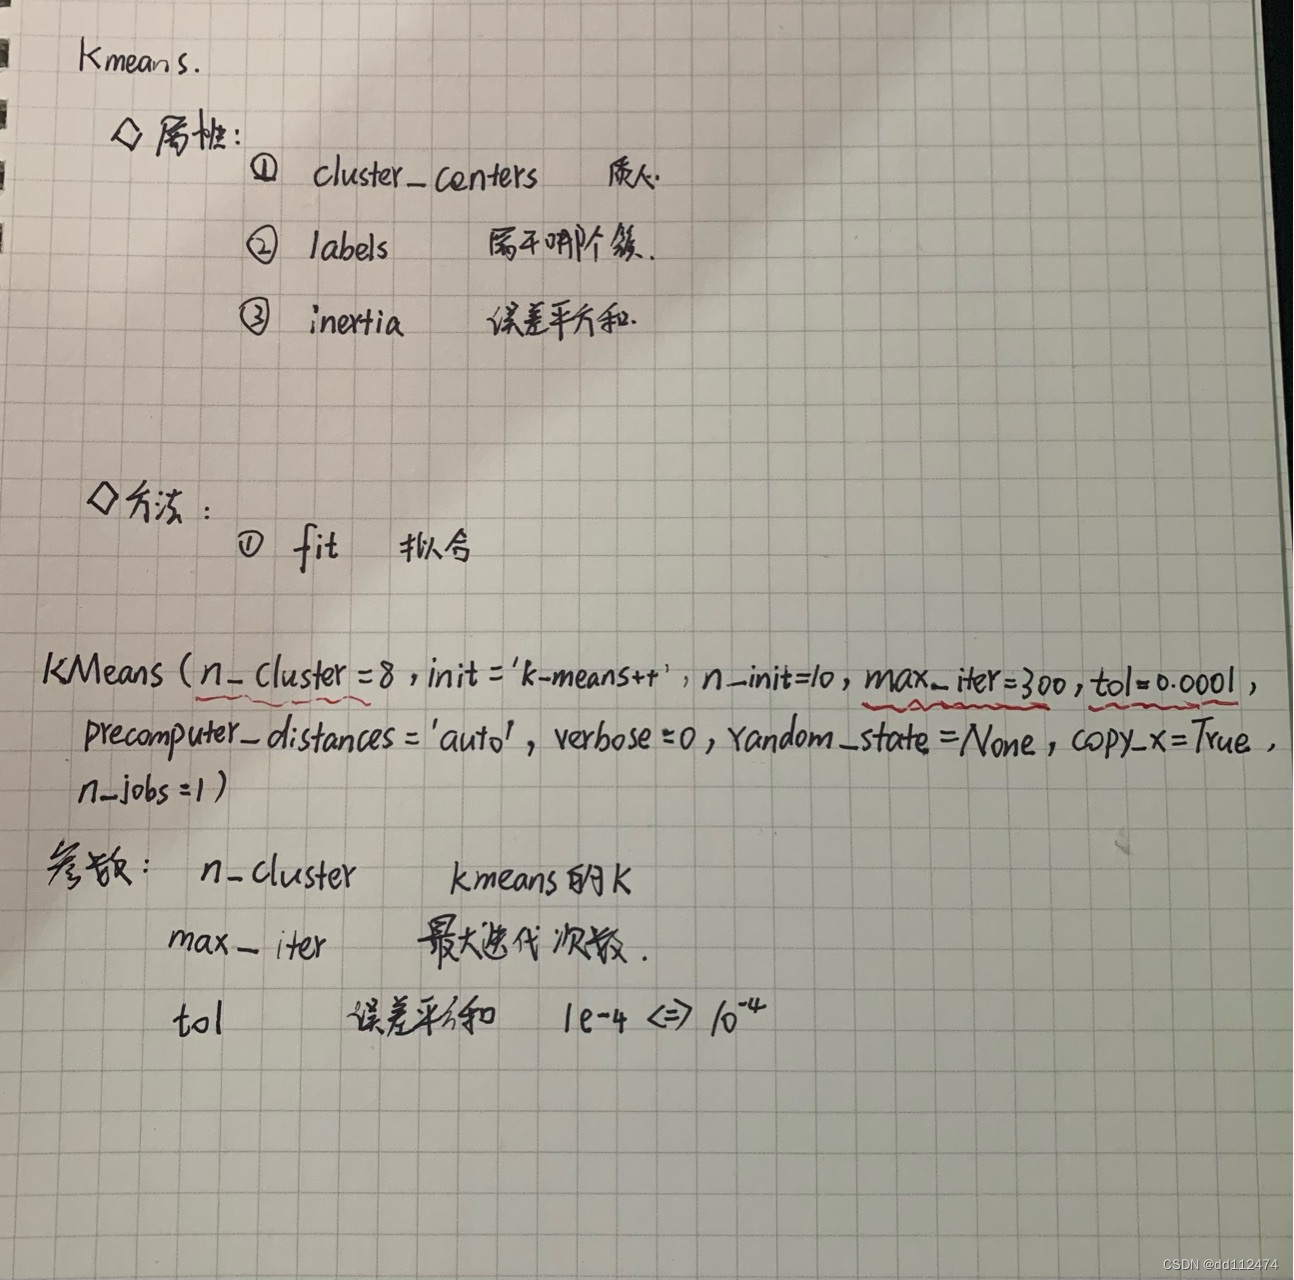 Kmeans.
◇ 属性:
① cluster_centers 质心.
② labels 属于哪个簇.
③ inertia 误差平方和.
◇ 方法:
① fit 拟合
KMeans (n_cluster=8, init='k-means++', n_init=10, max_iter=300, tol=0.0001,
precomputer_distances='auto', verbose=0, random_state=None, copy_x=True,
n_jobs=1)
参数: n_cluster kmeans的K
max_iter 最大迭代次数.
tol 误差平方和 1e-4 <=> 10⁻⁴
CSDN @dd112474